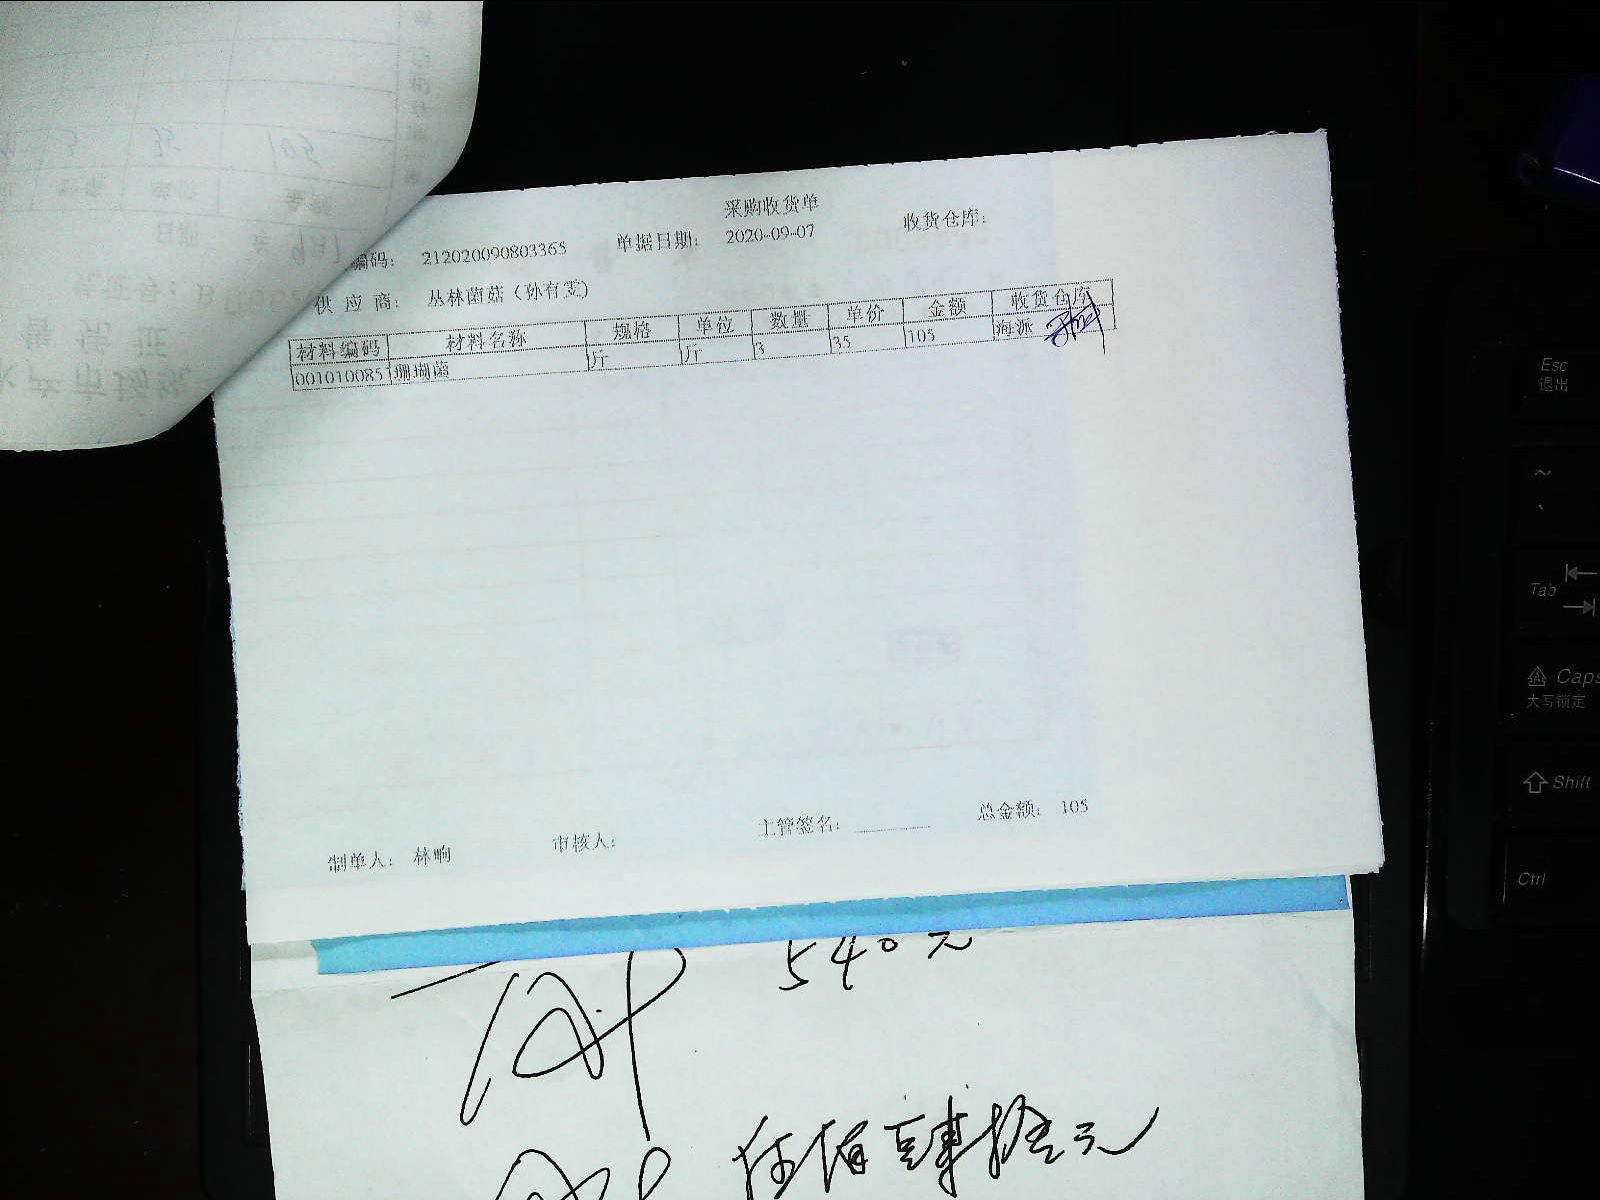 采购收货单
编码： 212020090803365 单据日期： 2020-09-07 收货仓库：
供 应 商： 丛林菌菇（孙有雯）
材料编码 材料名称 规格 单位 数量 单价 金额 收货仓库
001010085 珊瑚菌 斤 斤 3 35 105 海派
制单人： 林晌 审核人： 主管签名： 总金额： 105
540元
伍佰肆拾元
Esc
退出
~
Tab
Caps
大写锁定
Shift
Ctrl